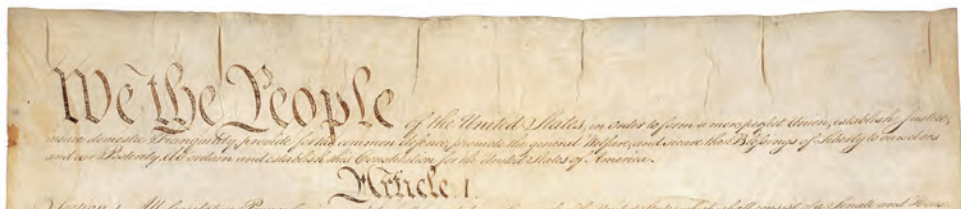 We the People of the United States, in Order to form a more perfect Union, establish Justice,
insure domestic Tranquility, provide for the common defence, promote the general Welfare, and secure the Blessings of Liberty to ourselves
and our Posterity, do ordain and establish this Constitution for the United States of America.
Article. I.
Section. 1. All legislative Powers shall consist of a Senate and House